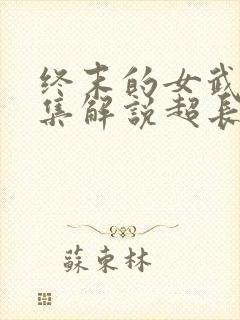 终末的女武
集解說超長
蘇東林